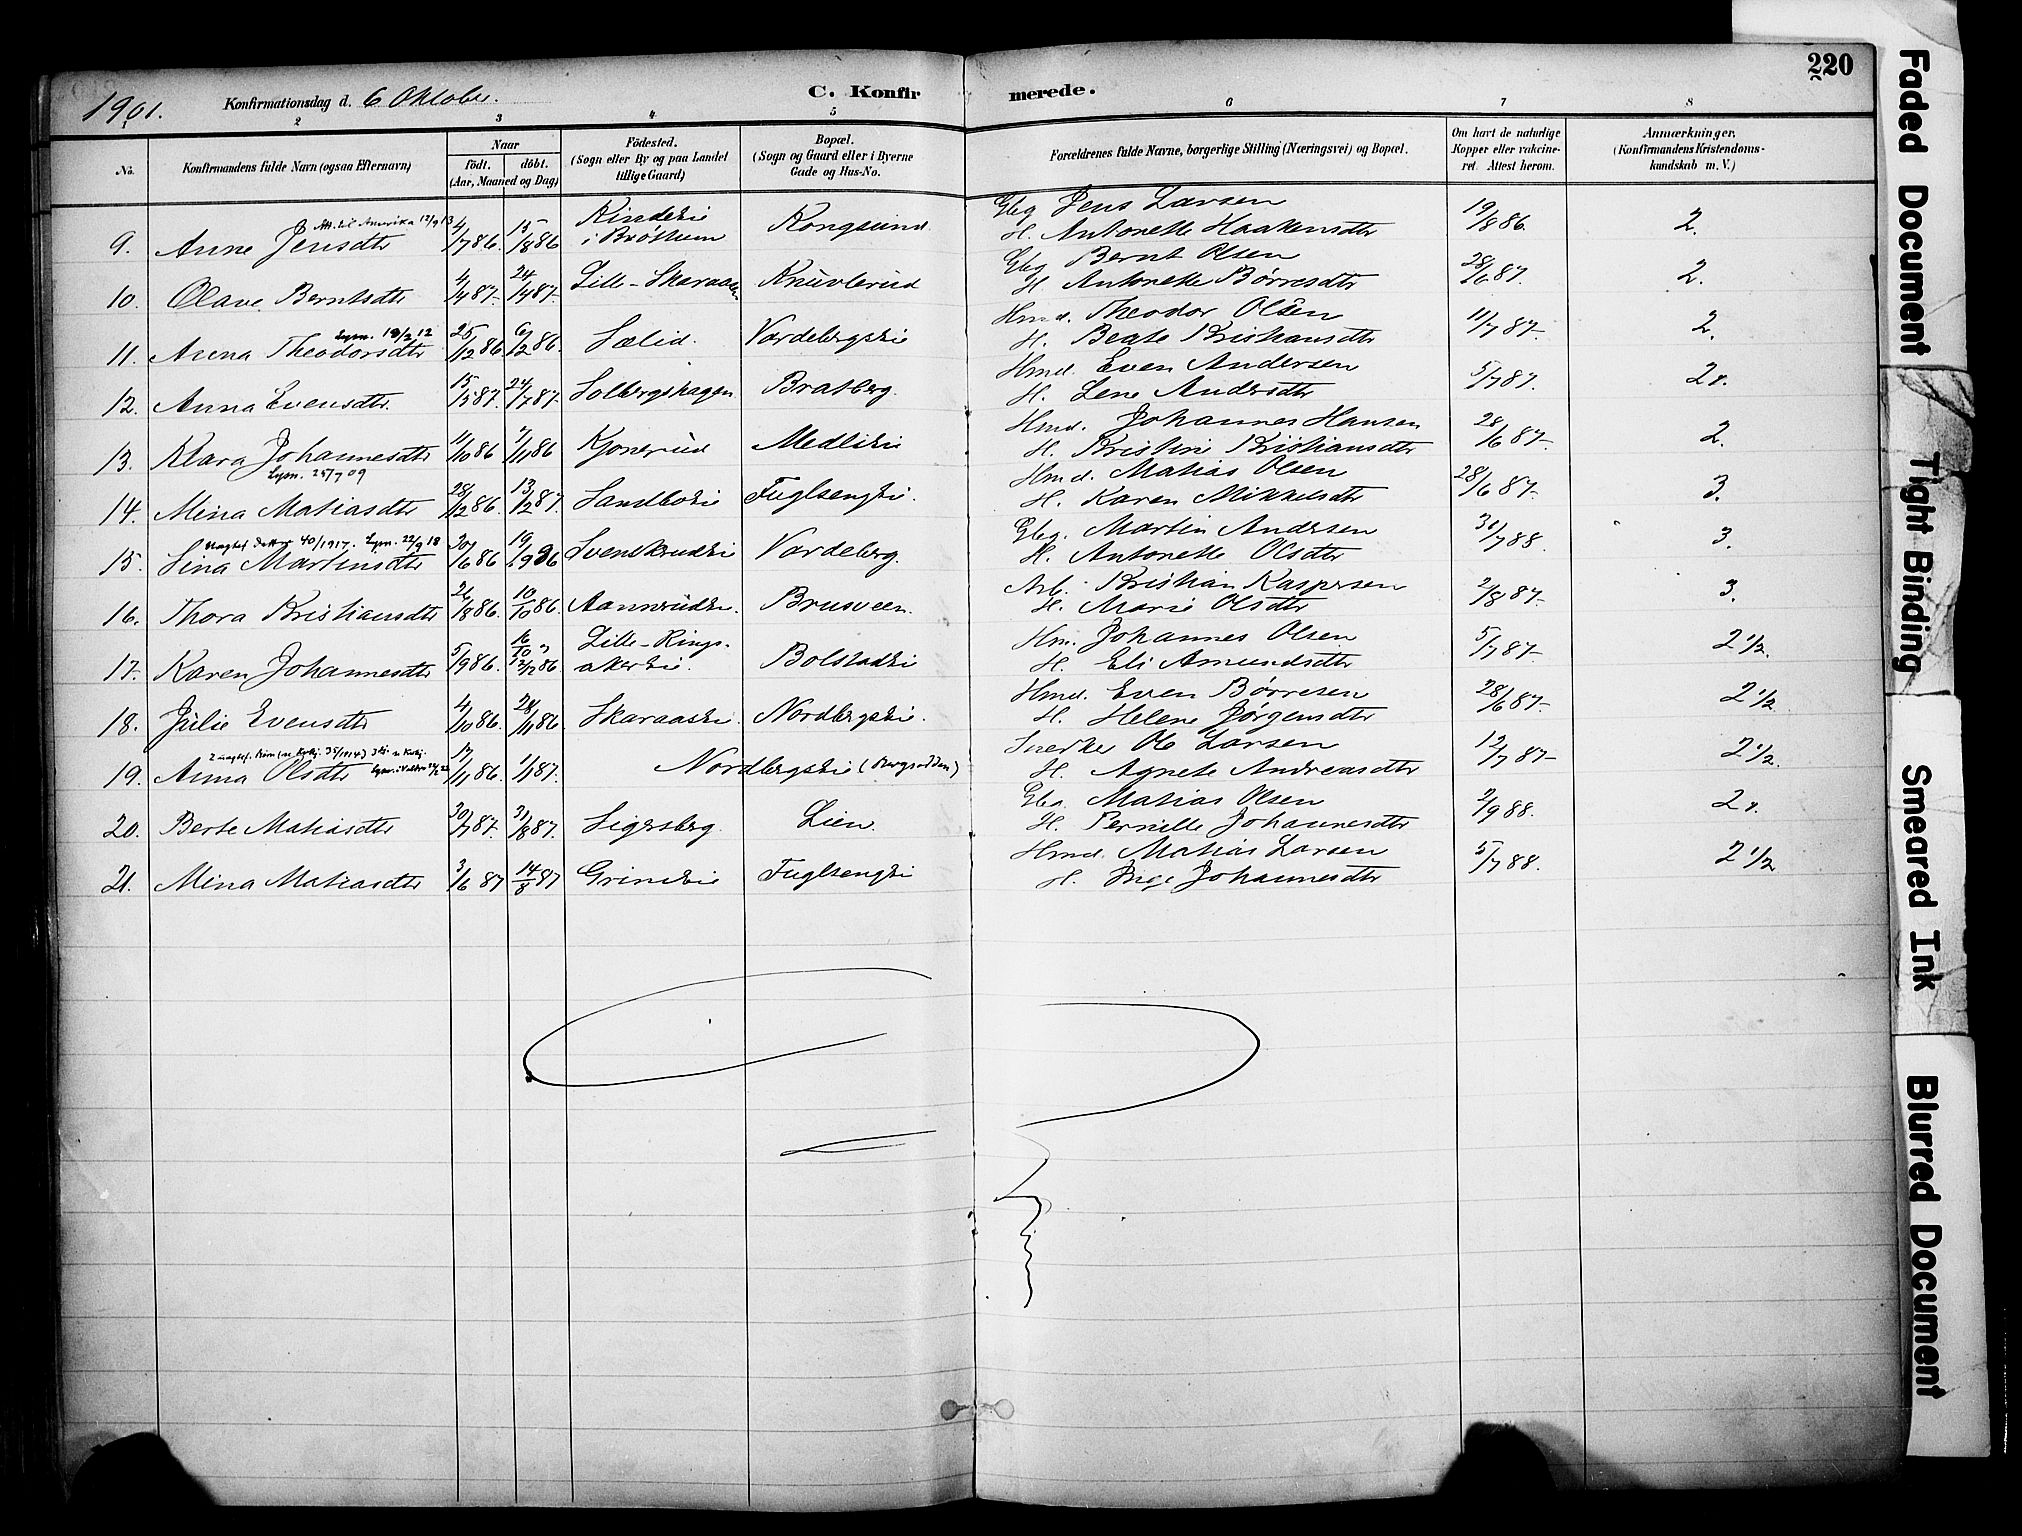 220
1901. Konfirmationsdag d. 6 Oktober. C. Konfirmerede.
1 2 3 4 5 6 7 8
No. Konfirmandens fulde Navn (ogsaa Efternavn) Naar født. døbt. (Aar, Maaned og Dag) Fødested. (Sogn eller By og paa Landet tillige Gaard) Bopæl. (Sogn og Gaard eller i Byerne Gade og Hus-No. Forældrenes fulde Navne, borgerlige Stilling (Næringsvei) og Bopæl. Om havt de naturlige Kopper eller vakcineret. Attest herom. Anmærkninger. (Konfirmandens Kristendomskundskab m. V.)
Att. til Amerika 12/9 13
9. Anne Jensdtr 4/7 86. 15/8 86 i Brøttum Kongsund. Gbg Jens Larsen
H. Antonette Haakensdtr 19/8 86. 2.
10. Olave Berntsdtr 4/4 87. 24/4 87. Lille-Skaraaen Knuvlerud Gbg Bernt Olsen
H. Antonette Børresdtr 28/6 87. 2.
Lysn. 12
11. Anna Theodorsdtr 25/12 86 Sælid. Vardebergseie Hmd. Theodor Olsen
H. Beate Kristiansdtr 11/7 87. 2.
12. Anna Evensdtr 15/5 87. 24/7 87. Solbergshagen Bratberg. Hmd. Even Andersen
H. Lene Andersdtr 5/7 87. 2.
13. Klara Johannesdtr 11/10 86 7/11 86 Kjonerud Medlieie Hmd. Johannes Hansen
H. Kristine Kristiansdtr 28/6 87. 2.
Lysn. 25/7 09
14. Mina Matiasdtr 28/12 86. 13/2 87. Sandboeie Fuglsengeie. Hmd. Matias Olsen
H. Karen Mikkelsdtr 28/6 87. 3.
Uægtef. datter 40/1917. Lysn. 22/9 18
15. Lina Martinsdtr 30/6 86 19/9 86 Svenskrudeie Vardeberg. Gbg. Martin Andersen
H. Antonette Olsdtr 31/7 88. 3.
16. Thora Kristiansdtr 21/8 86. 10/10 86. Aannerudei. Brusveen. Arb. Kristian Kaspersen
H. Marie Olsdtr 2/8 87. 3.
17. Karen Johannesdtr 5/9 86. 16/10 12/12 86 Lille-Ringsakereie. Bolstadeie Hm. Johannes Olsen
H. Eli Amundsdtr 5/7 87. 2 1/2.
18. Julie Evensdtr 4/10 86. 28/11 86 Skaraaseie. Nordbergseie. Hmd. Even Børresen
H. Helene Jørgensdtr 28/6 87. 2 1/2
2 uægtef. Børn 35/1914)
19. Anna Olsdtr 17/11 86. 1/1 87. Nordbergseie (Bergsodden) Snedker Ole Larsen
H. Agnete Andreasdtr 12/7 87. 2 1/2.
20. Berte Matiasdtr 30/7 87. 31/8 87. Sigersberg. Lien. Gbg. Matias Olsen
H. Pernille Johannesdtr 2/9 88. 2.
21. Mina Matiasdtr 3/6 87 14/8 87 Grindeie Fuglsengeie Hmd. Matias Larsen
H. Inge Johannesdtr 5/7 88. 2 1/2
Faded Document
Tight Binding
Smeared Ink
Blurred Document